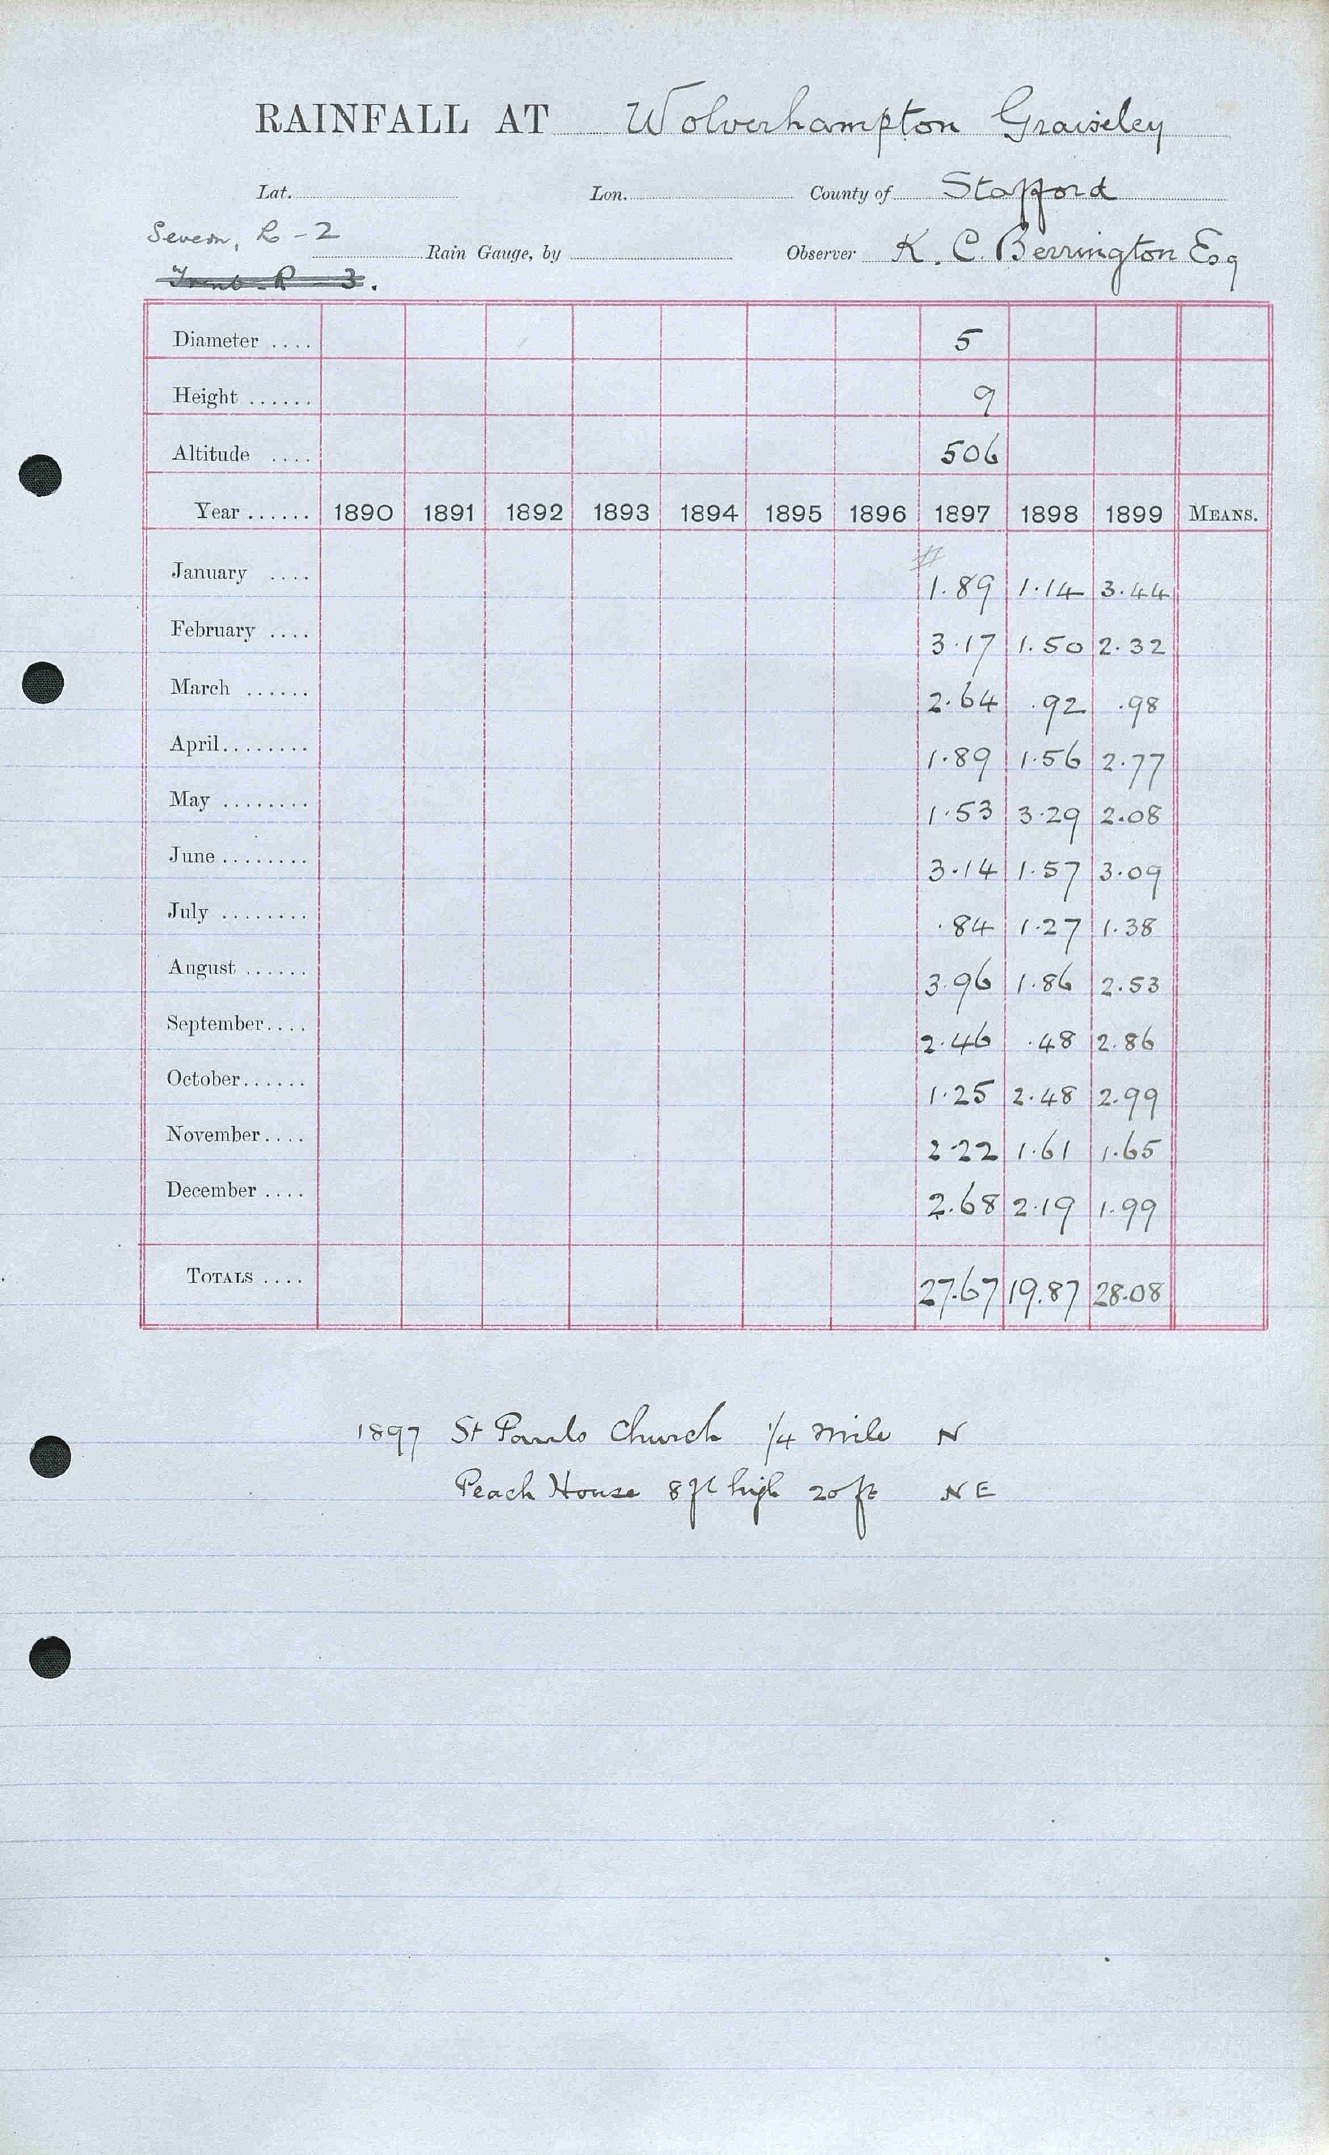 RAINFALL AT Wolverhampton Graiseley
Lat. Lon. County of Stafford
Severn, L - 2
Rain Gauge, by Observer K. C. Berrington Esq
Trent R 3.
Diameter .... 5
Height ...... 9
Altitude .... 506
Year ...... 1890 1891 1892 1893 1894 1895 1896 1897 1898 1899 MEANS.
#
January .... 1.89 1.14 3.44
February .... 3.17 1.50 2.32
March ...... 2.64 .92 .98
April........ 1.89 1.56 2.77
May ........ 1.53 3.29 2.08
June ........ 3.14 1.57 3.09
July ........ .84 1.27 1.38
August ...... 3.96 1.86 2.53
September.... 2.46 .48 2.86
October...... 1.25 2.48 2.99
November.... 2.22 1.61 1.65
December .... 2.68 2.19 1.99
TOTALS .... 27.67 19.87 28.08
1897 St Pauls Church 1/4 mile N
Peach House 8 ft high 20 ft NE